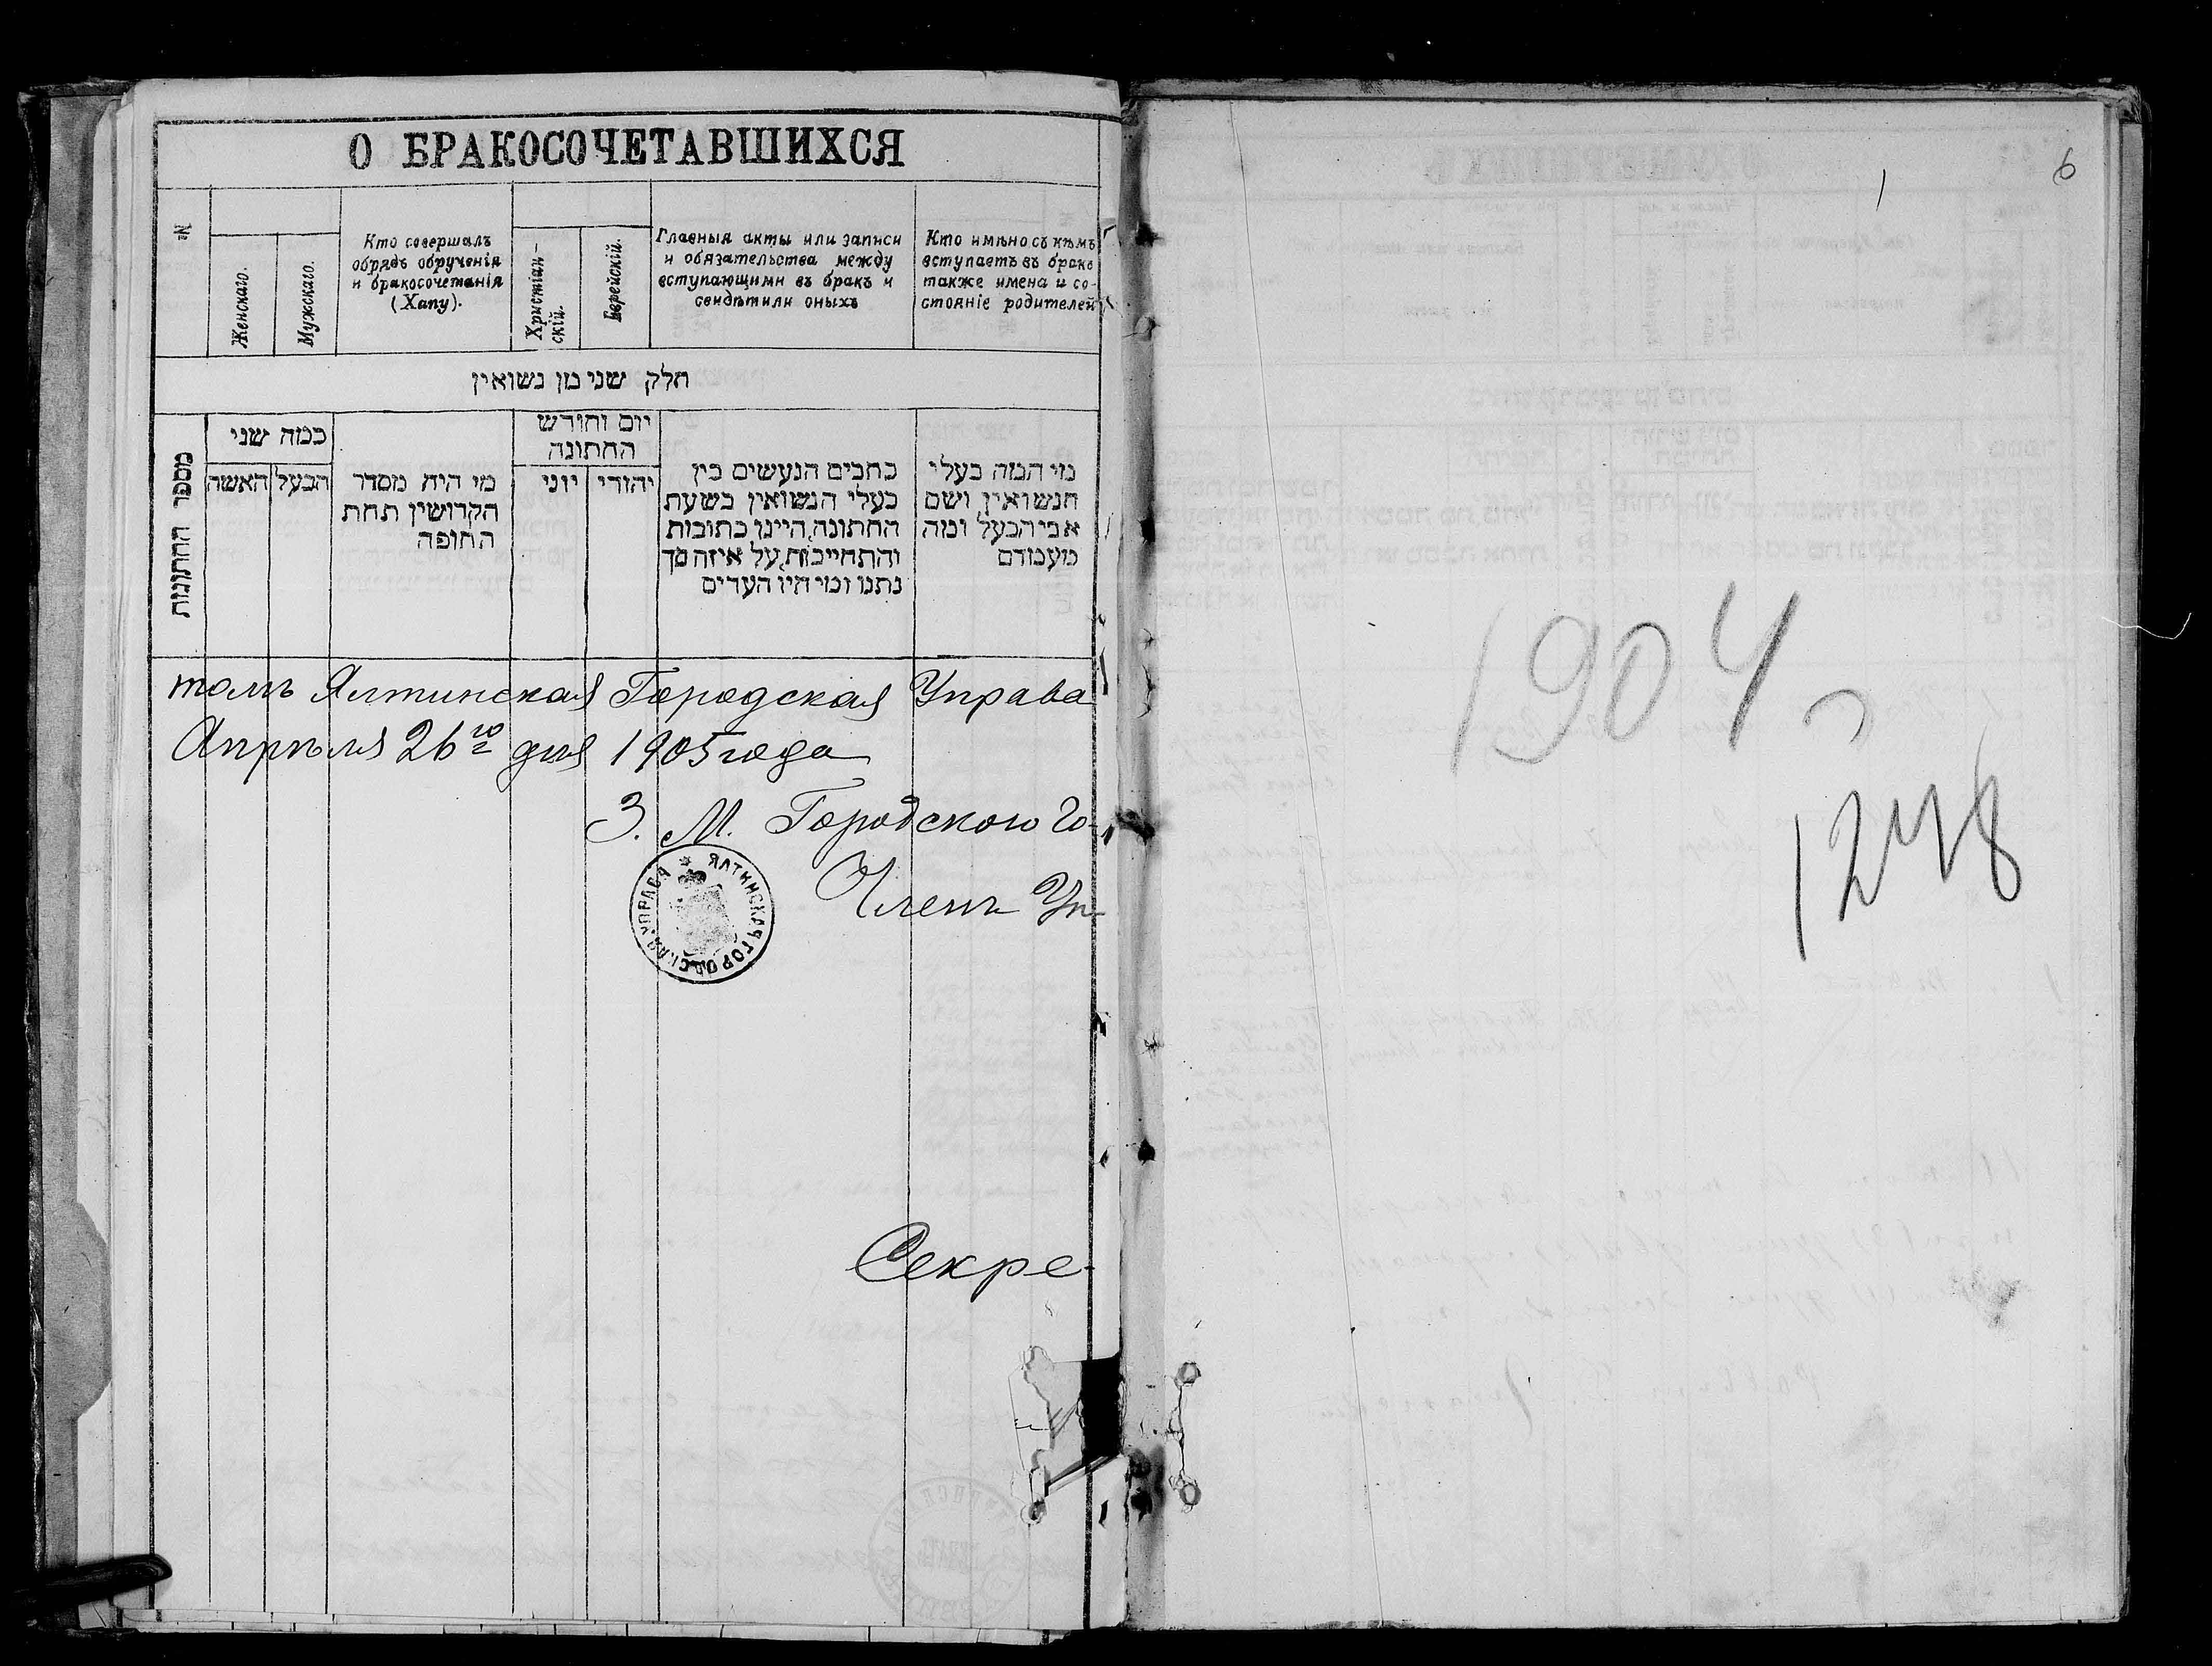 О БРАКОСОЧЕТАВШИХСЯ
№
Женскаго.
Мужскаго.
Кто совершалъ
обрядъ обрученія
и бракосочетанія
(Хапу).
Христіан-
скій.
Еврейскій.
Главныя акты или записи
и обязательства между
вступающими въ бракъ и
свидѣтили оныхъ
Кто имѣно съ кѣмъ
вступаетъ въ бракъ
также имена и со-
стояніе родителей
חלק שני מן נשואין
מספר החתונות
כמה שני
האשה
הבעל
מי היה מסדר
הקדושין תחת
החופה
יום וחודש
החתונה
יוני
יהודי
כתבים הנעשים בין
בעלי הנשואין בשעת
החתונה, היינו כתובות
והתחייבות, על איזה סך
נתנו ומי היו העדים
מי המה בעלי
הנשואין ושם
אבי הבעל ומה
מעמדם
томъ Ялтинская Городская Управа
Апрѣля 26го дня 1905 года
З. М. Городского Го-
Членъ Уп-
ЯЛТИНСКАЯ ГОРОДСКАЯ УПРАВА
Секре-
6
1904